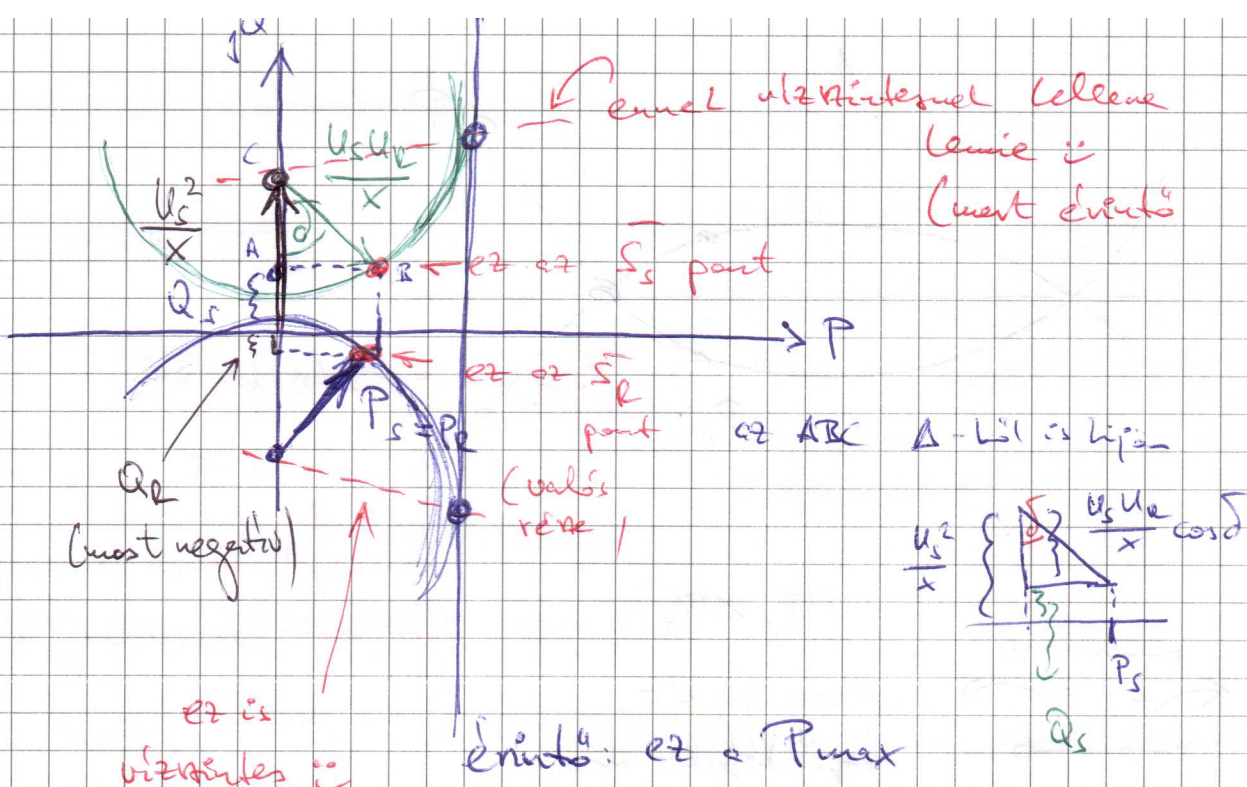 jQ
ennek vízszintesnek kellene
lennie :)
(mert érintő
C
U_S U_R / X
U_S² / X
δ
A
B
ez az S̄_S pont
Q_S
P
ez az S̄_R
pont
(valós
része)
P_S = P_R
az ABC Δ-ből is kijön
Q_R
(most negatív)
U_S² / X
δ
U_S U_R / X cos δ
P_S
Q_S
ez is
vízszintes :)
érintő: ez a Pmax